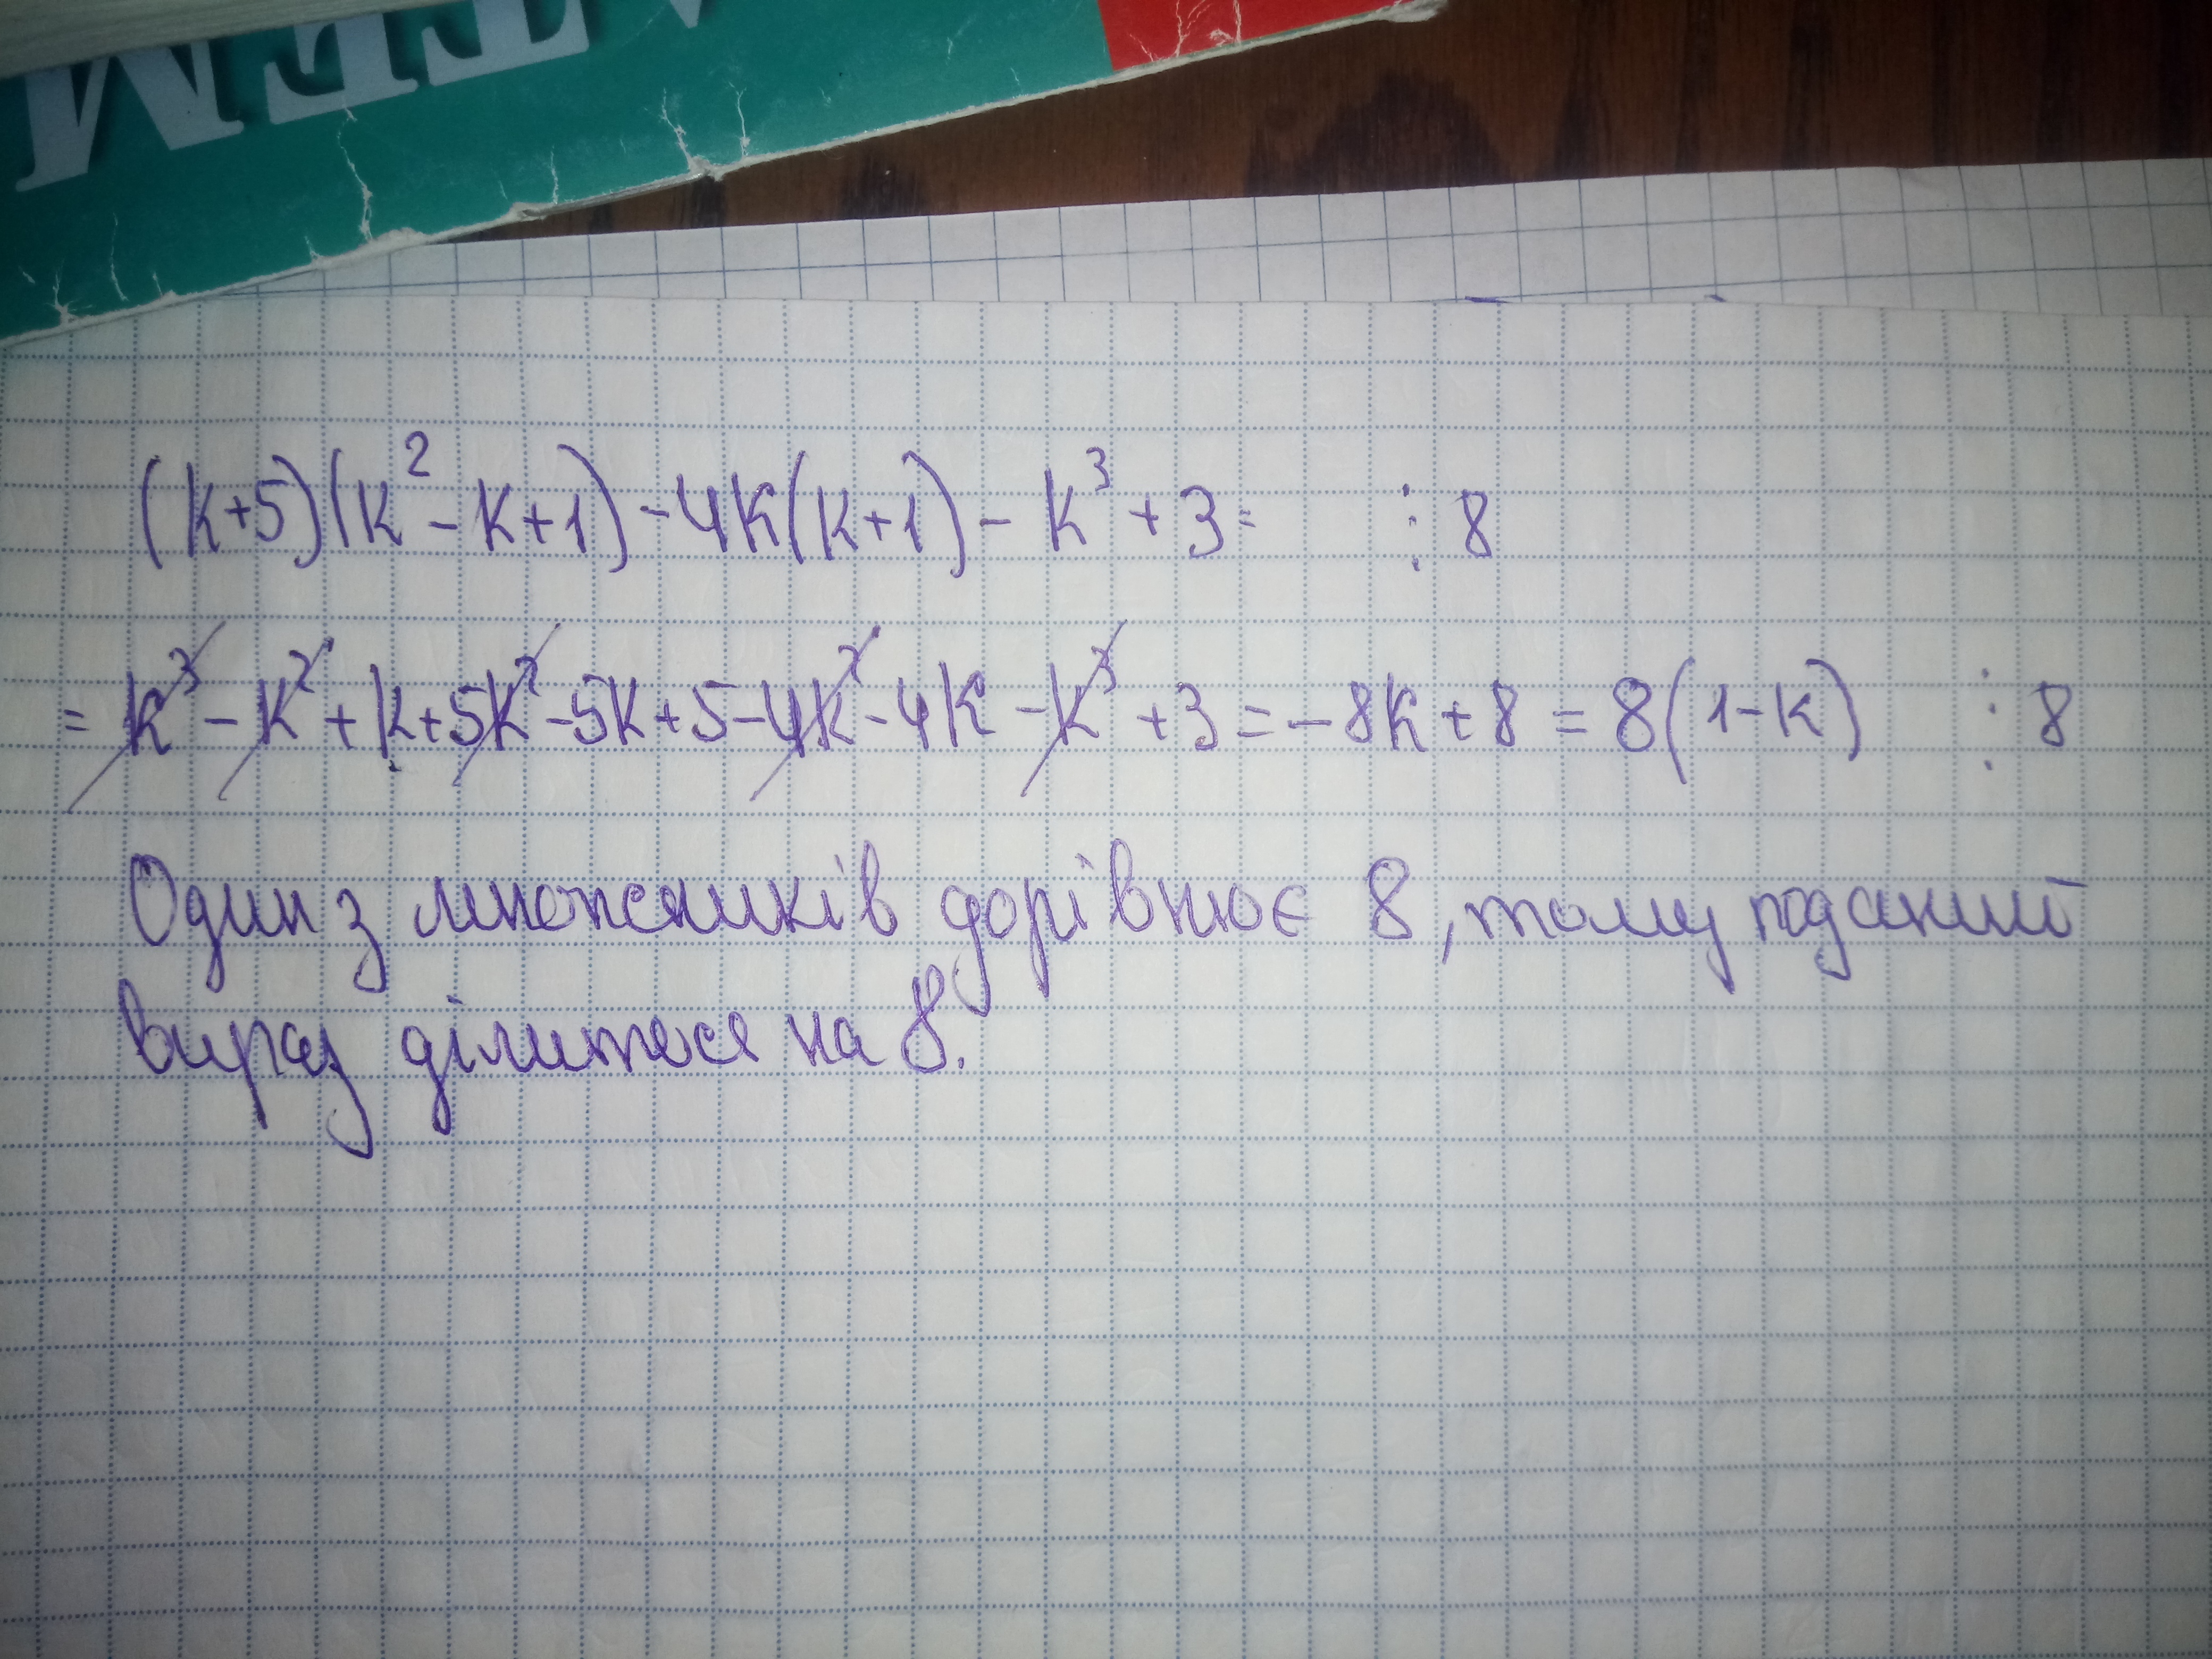 (k+5)(k²-k+1)-4k(k+1)-k³+3= ⋮ 8
= k³-k²+k+5k²-5k+5-4k²-4k-k³+3=-8k+8=8(1-k) ⋮ 8
Один з множників дорівнює 8, тому поданий
вираз ділиться на 8.